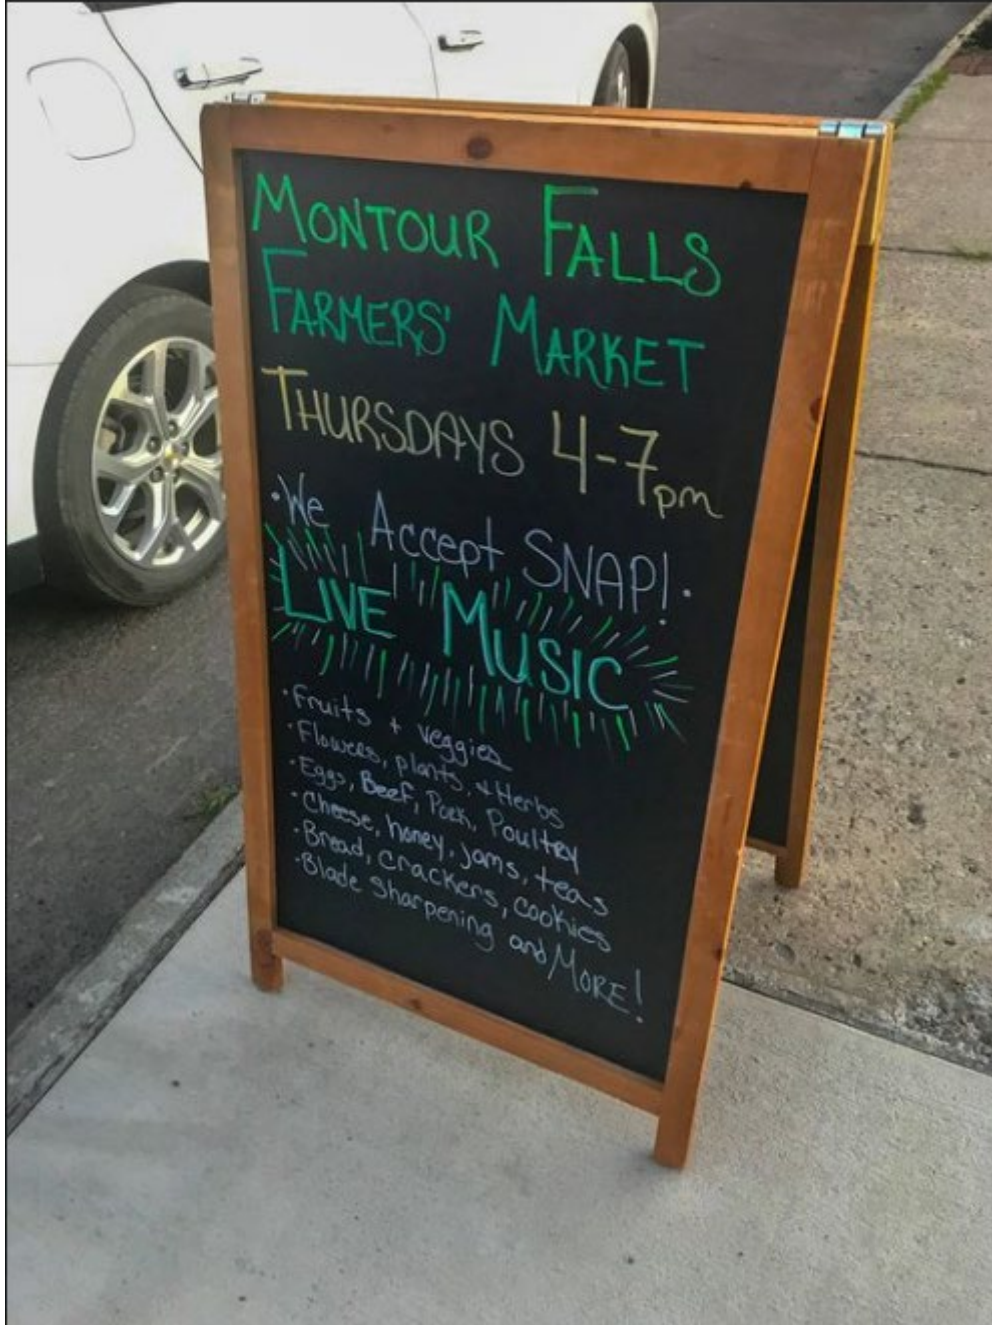 MONTOUR FALLS
FARMERS' MARKET
THURSDAYS 4-7pm
·We Accept SNAP!·
LIVE MUSIC
·Fruits + veggies
·Flowers, plants, & Herbs
·Eggs, Beef, Pork, Poultry
·Cheese, honey, jams, teas
·Bread, crackers, cookies
·Blade sharpening and MORE!